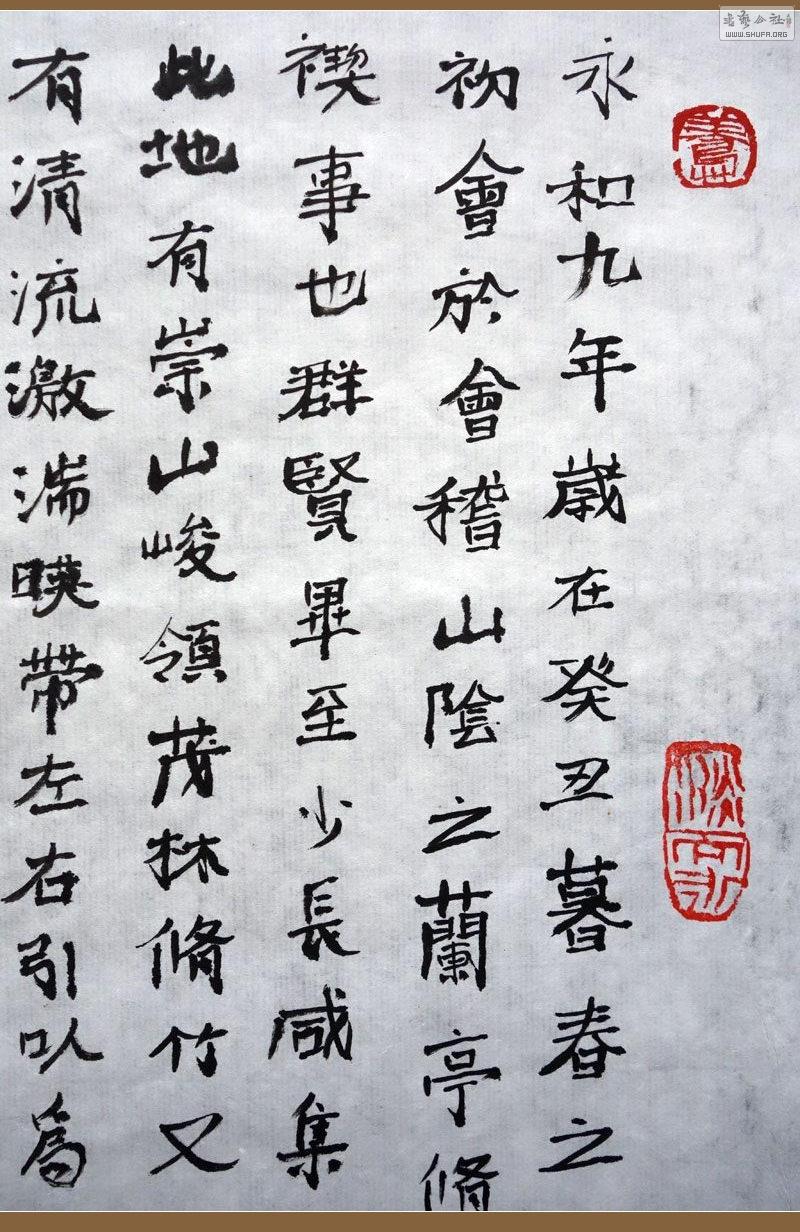 永和九年歲在癸丑暮春之
初會於會稽山陰之蘭亭脩
禊事也群賢畢至少長咸集
此地有崇山峻領茂林脩竹又
有清流激湍暎帶左右引以為
WWW.SHUFA.ORG